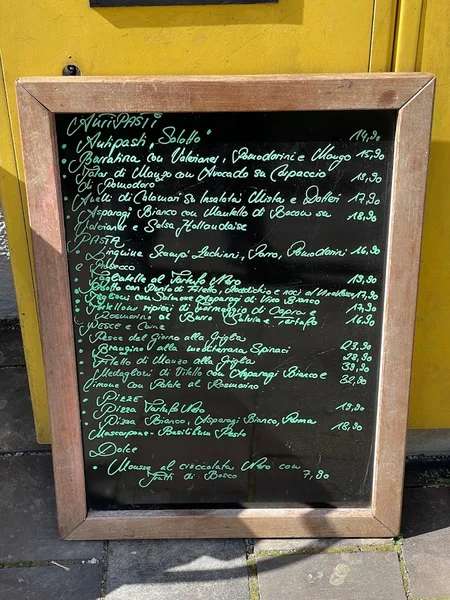 ANTIPASTI
Antipasti "Salotto" 14,90
• Burratina con Valeriana, Pomodorini e Mango 15,90
Tatar di Manzo con Avocado su Carpaccio 18,90
di Pomodoro
• Anelli di Calamari su Insalata Mista e Datteri 17,90
• Asparagi Bianco con Mantello di Bacon su 18,90
Valeriana e Salsa Hollandaise
PASTA
• Linguine Scampi, Zucchini, Porro, Pomodorini 16,90
e Prosecco
• Tagliatelle al Tartufo Nero 19,90
con di Filetto, e noci 17,90
con Salmone Asparagi di Vino Bianco 17,90
ripieni di formaggio di Capra e 16,90
Rosmarino al Burro Salvia e Tartufo
Pesce e Carne
• Pesce del Giorno alla Griglia 23,90
• Branzino alla mediterrana Spinaci 28,90
• Filetto di Manzo alla Griglia 39,90
• Medaglioni di Vitello con Asparagi Bianco e 32,90
Limone con Patate al Rosmarino
• PIZZE
• Pizza Tartufo Nero 19,90
• Pizza Bianco, Asparagi Bianco, Parma 18,90
Mascarpone - Basilikum Pesto
Dolce
• Mousse al cioccolata Nero con
Frutti di Bosco 7,90